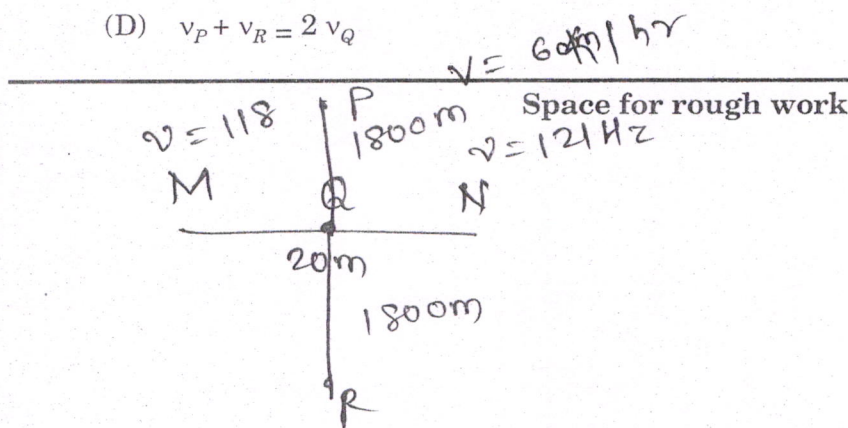 (D) νP + νR = 2 νQ
V = 60km/hr
Space for rough work
ν = 118
P
1800m
ν = 121Hz
M
Q
N
20m
1800m
R